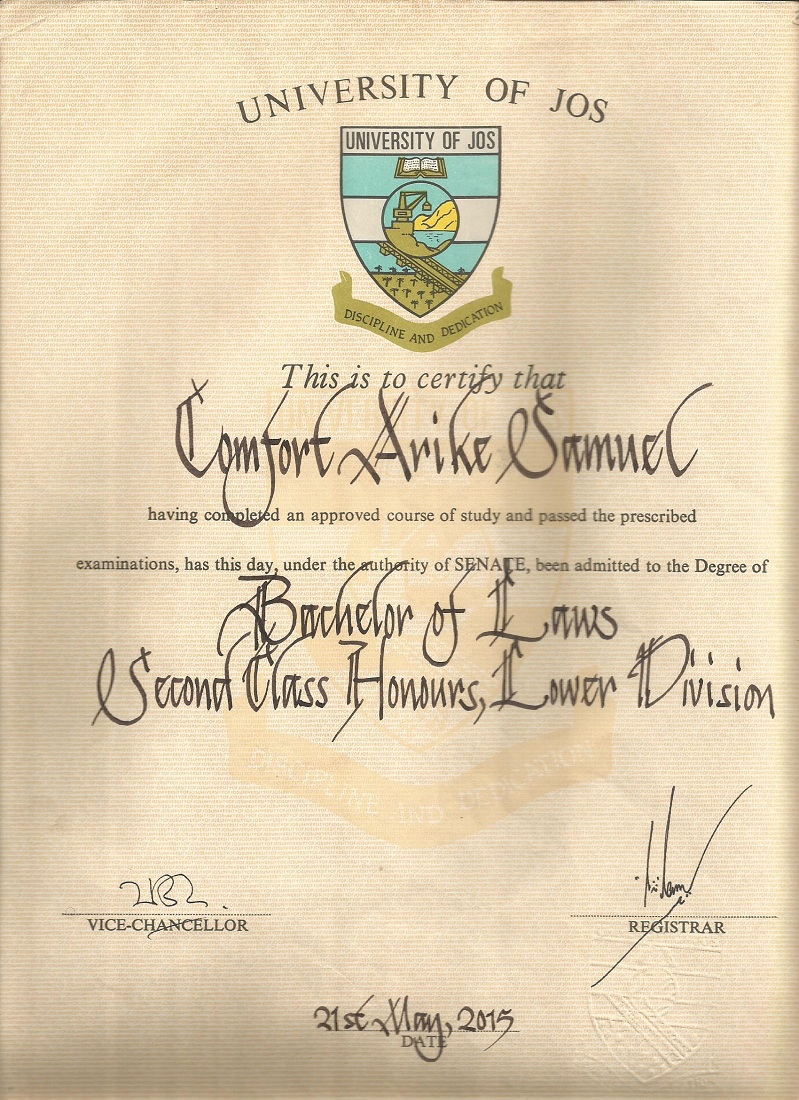 UNIVERSITY OF JOS
UNIVERSITY OF JOS
DISCIPLINE AND DEDICATION
This is to certify that
Comfort Arike Samuel
having completed an approved course of study and passed the prescribed
examinations, has this day, under the authority of SENATE, been admitted to the Degree of
Bachelor of Laws
Second Class Honours, Lower Division
DISCIPLINE AND DEDICATION
VICE-CHANCELLOR
REGISTRAR
21st May, 2015
DATE